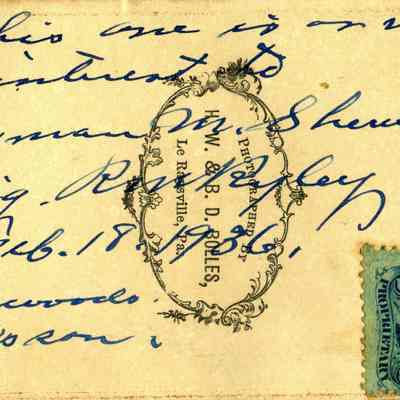 his one is
interest to
man M. Sherw
g.
eb. 18. 1936,
woods.
son.
PHOTOGRAPHED BY
H. W. & B. D. ROLLES,
Le Raysville, Pa.
PROPRIETARY